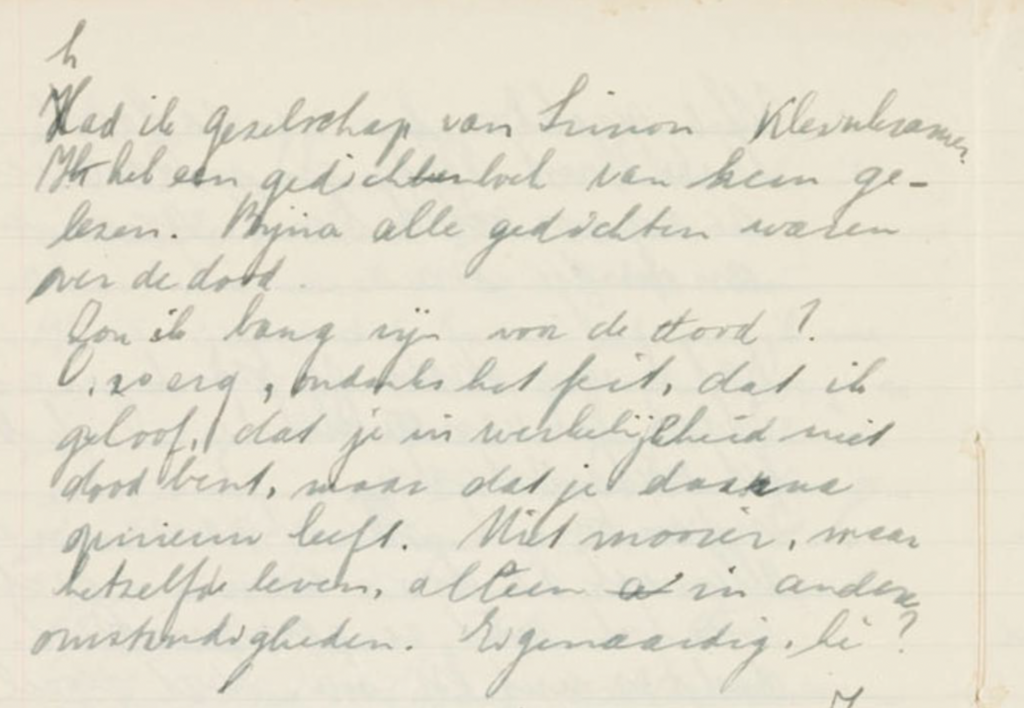 h
Had ik gezelschap van Simon
Ik heb een gedichtenboek van hem ge-
lezen. Bijna alle gedichten waren
over de dood.
Zou ik bang zijn voor de dood?
zo erg, ondanks het feit, dat ik
geloof, dat je in werkelijkheid niet
dood bent, maar dat je daarna
opnieuw leeft. Niet mooier, maar
hetzelfde leven, alleen in andere
omstandigheden. Eigenaardig, hè?